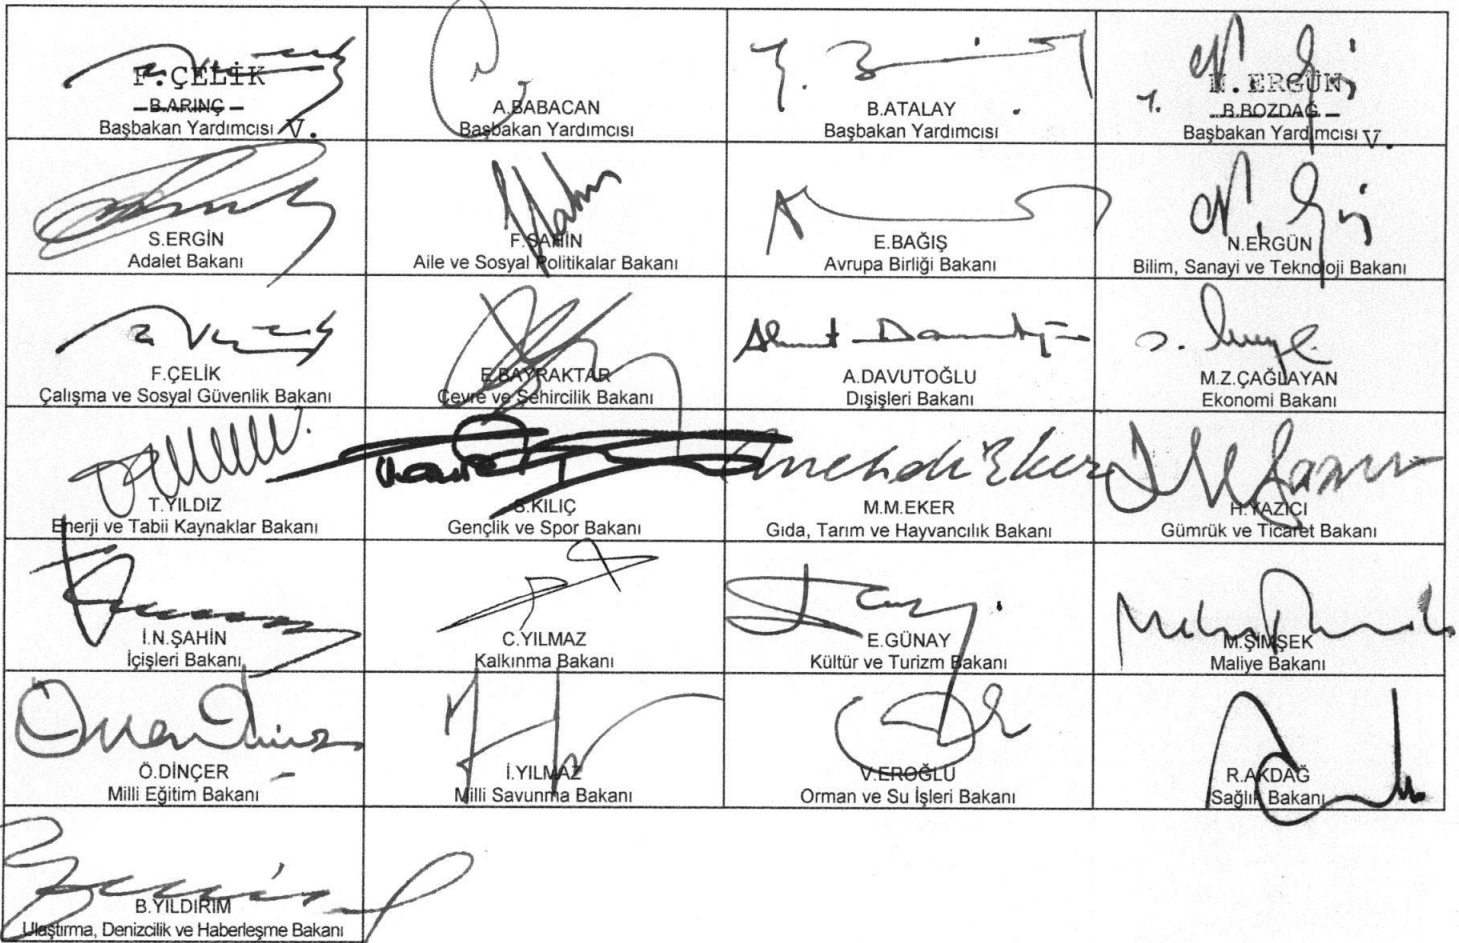 F. ÇELİK
B.ARINÇ
Başbakan Yardımcısı V.
A.BABACAN
Başbakan Yardımcısı
B.ATALAY
Başbakan Yardımcısı
N. ERGÜN
B.BOZDAĞ
Başbakan Yardımcısı V.
S.ERGİN
Adalet Bakanı
F.ŞAHİN
Aile ve Sosyal Politikalar Bakanı
E.BAĞIŞ
Avrupa Birliği Bakanı
N.ERGÜN
Bilim, Sanayi ve Teknoloji Bakanı
F.ÇELİK
Çalışma ve Sosyal Güvenlik Bakanı
E.BAYRAKTAR
Çevre ve Şehircilik Bakanı
Ahmet Davutoğlu
A.DAVUTOĞLU
Dışişleri Bakanı
M.Z.ÇAĞLAYAN
Ekonomi Bakanı
T.YILDIZ
Enerji ve Tabii Kaynaklar Bakanı
S.KILIÇ
Gençlik ve Spor Bakanı
mehdi Eker
M.M.EKER
Gıda, Tarım ve Hayvancılık Bakanı
H.YAZICI
Gümrük ve Ticaret Bakanı
İ.N.ŞAHİN
İçişleri Bakanı
C.YILMAZ
Kalkınma Bakanı
E.GÜNAY
Kültür ve Turizm Bakanı
M.ŞİMŞEK
Maliye Bakanı
Ö.DİNÇER
Milli Eğitim Bakanı
İ.YILMAZ
Milli Savunma Bakanı
V.EROĞLU
Orman ve Su İşleri Bakanı
R.AKDAĞ
Sağlık Bakanı
B.YILDIRIM
Ulaştırma, Denizcilik ve Haberleşme Bakanı